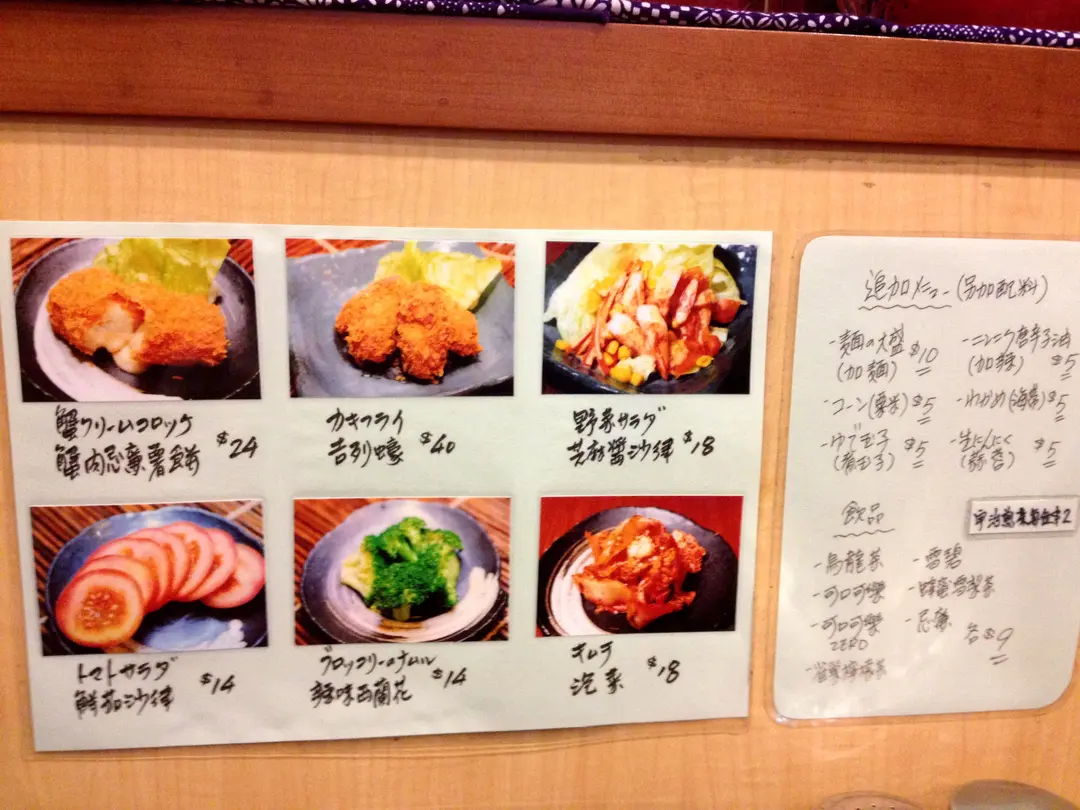 蟹クリームコロッケ
蟹肉忌廉薯餅 $24
カキフライ
吉列蠔 $40
野菜サラダ
芝麻醬沙律 $18
トマトサラダ
鮮茄沙律 $14
ブロッコリーのナムル
辣味西蘭花 $14
キムチ
泡菜 $18
追加メニュー (另加配料)
・麺の大盛 $10
(加麵)
・ニンニク唐辛子油
(加辣) $5
・コーン(粟米) $5
・わかめ(海藻) $5
・ゆで玉子 $5
(烚玉子)
・生にんにく $5
(蒜蓉)
飲品
・烏龍茶
・雪碧
・可口可樂
・蜂蜜
・可口可樂
ZERO
・忌廉
各 $9